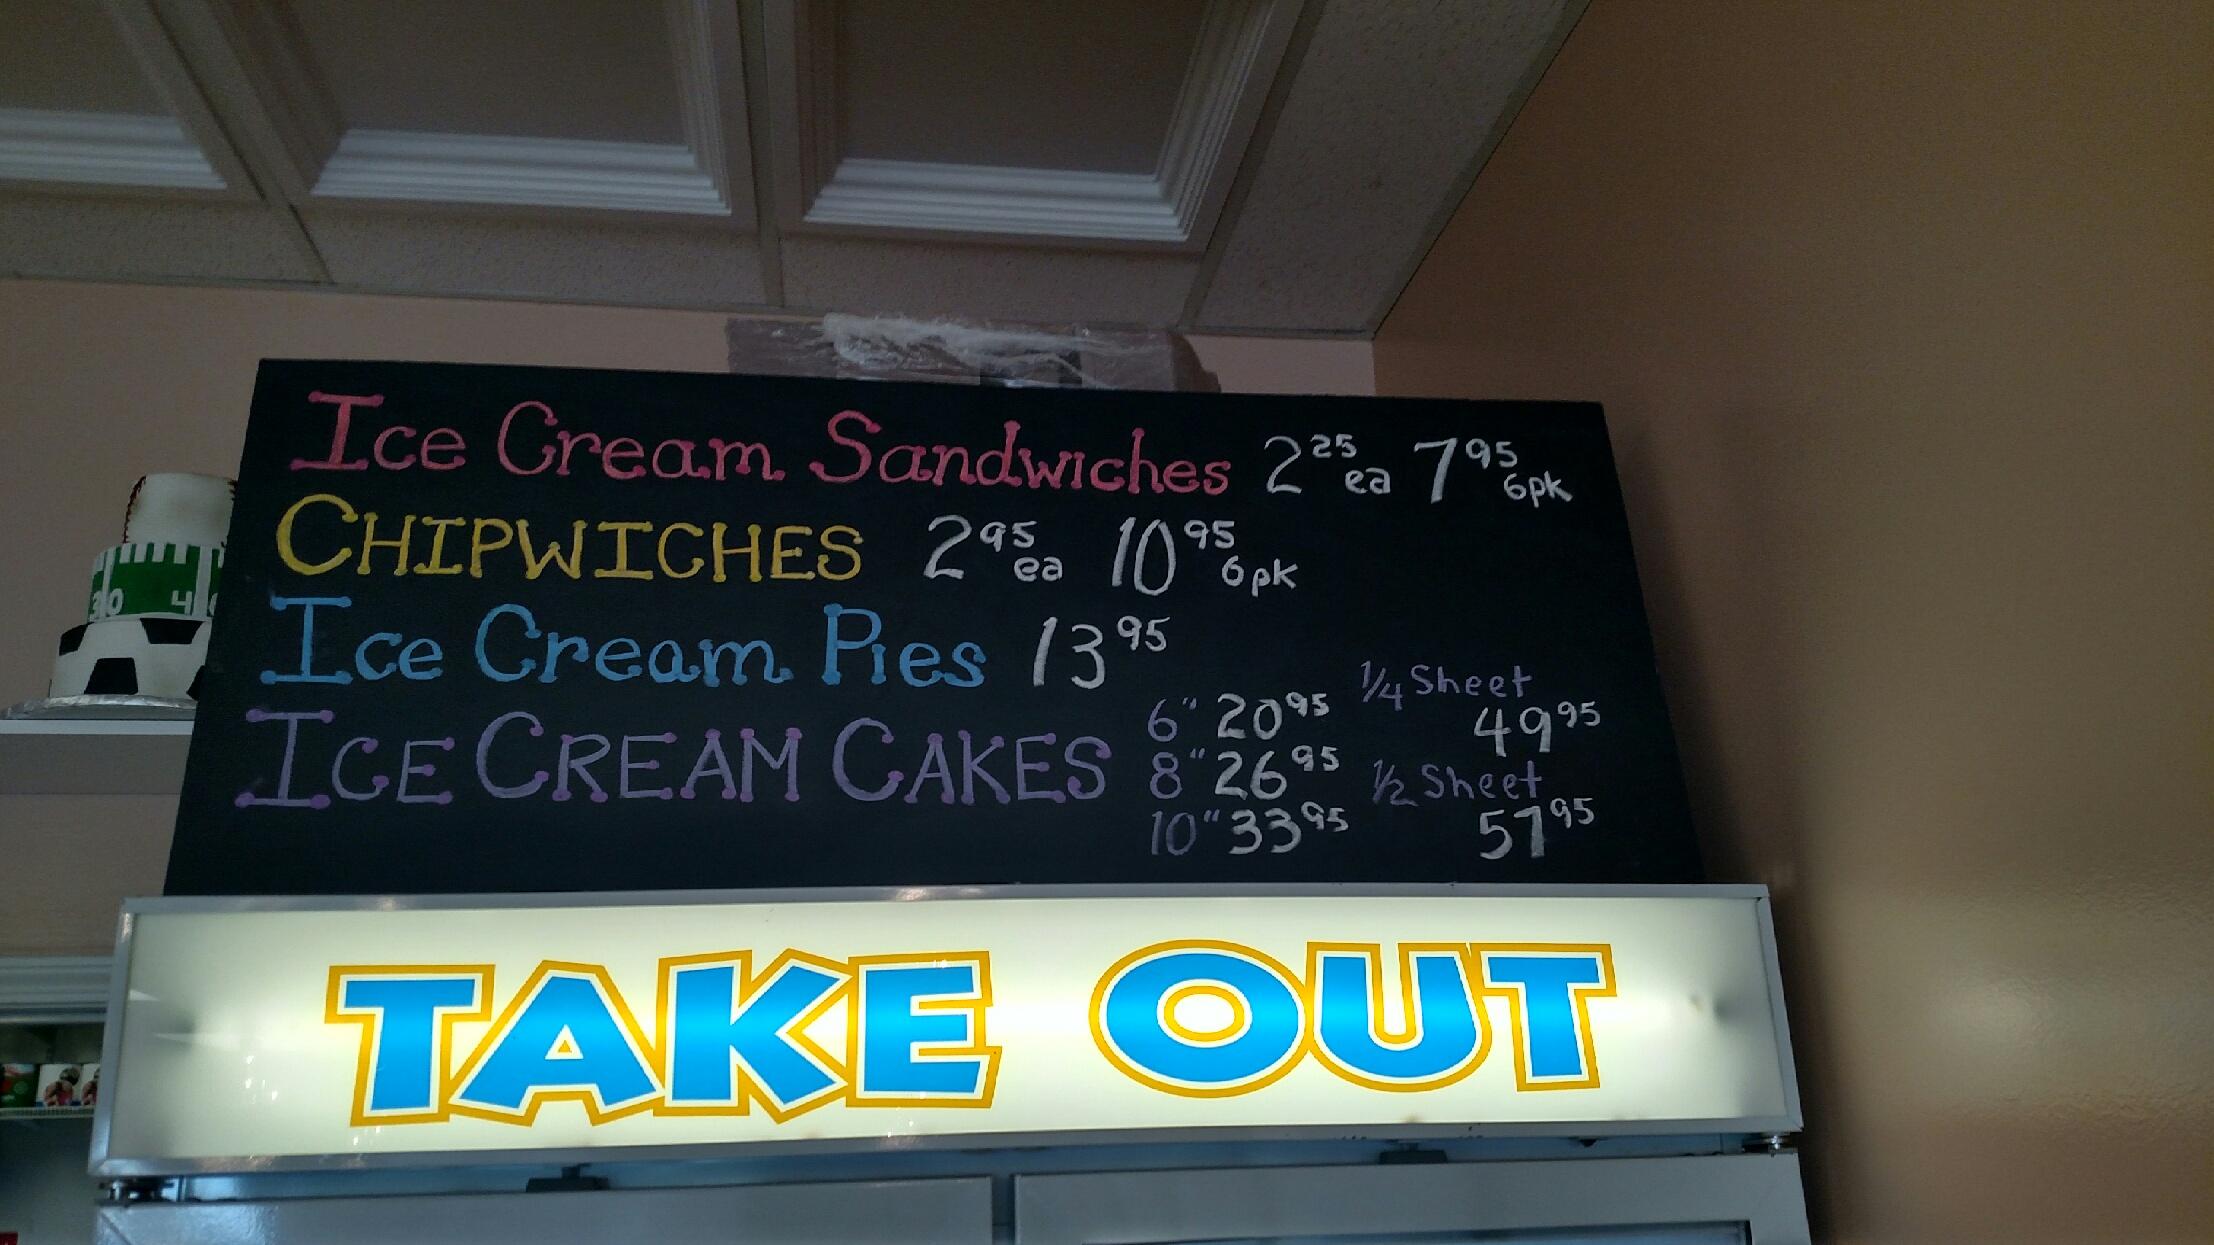 Ice Cream Sandwiches 2 25 ea 7 95 6pk
CHIPWICHES 2 95 ea 10 95 6pk
Ice Cream Pies 13 95
ICE CREAM CAKES
6" 20 95
8" 26 95
10" 33 95
1/4 Sheet
49 95
1/2 Sheet
57 95
TAKE OUT
30 4